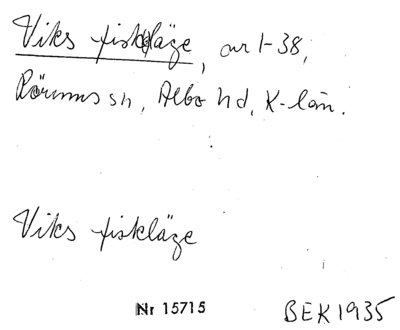 Viks fiskläge, ar 1-38,
Rörums sn, Albo hd, K-län.
Viks fiskläge
Nr 15715
BEK1935